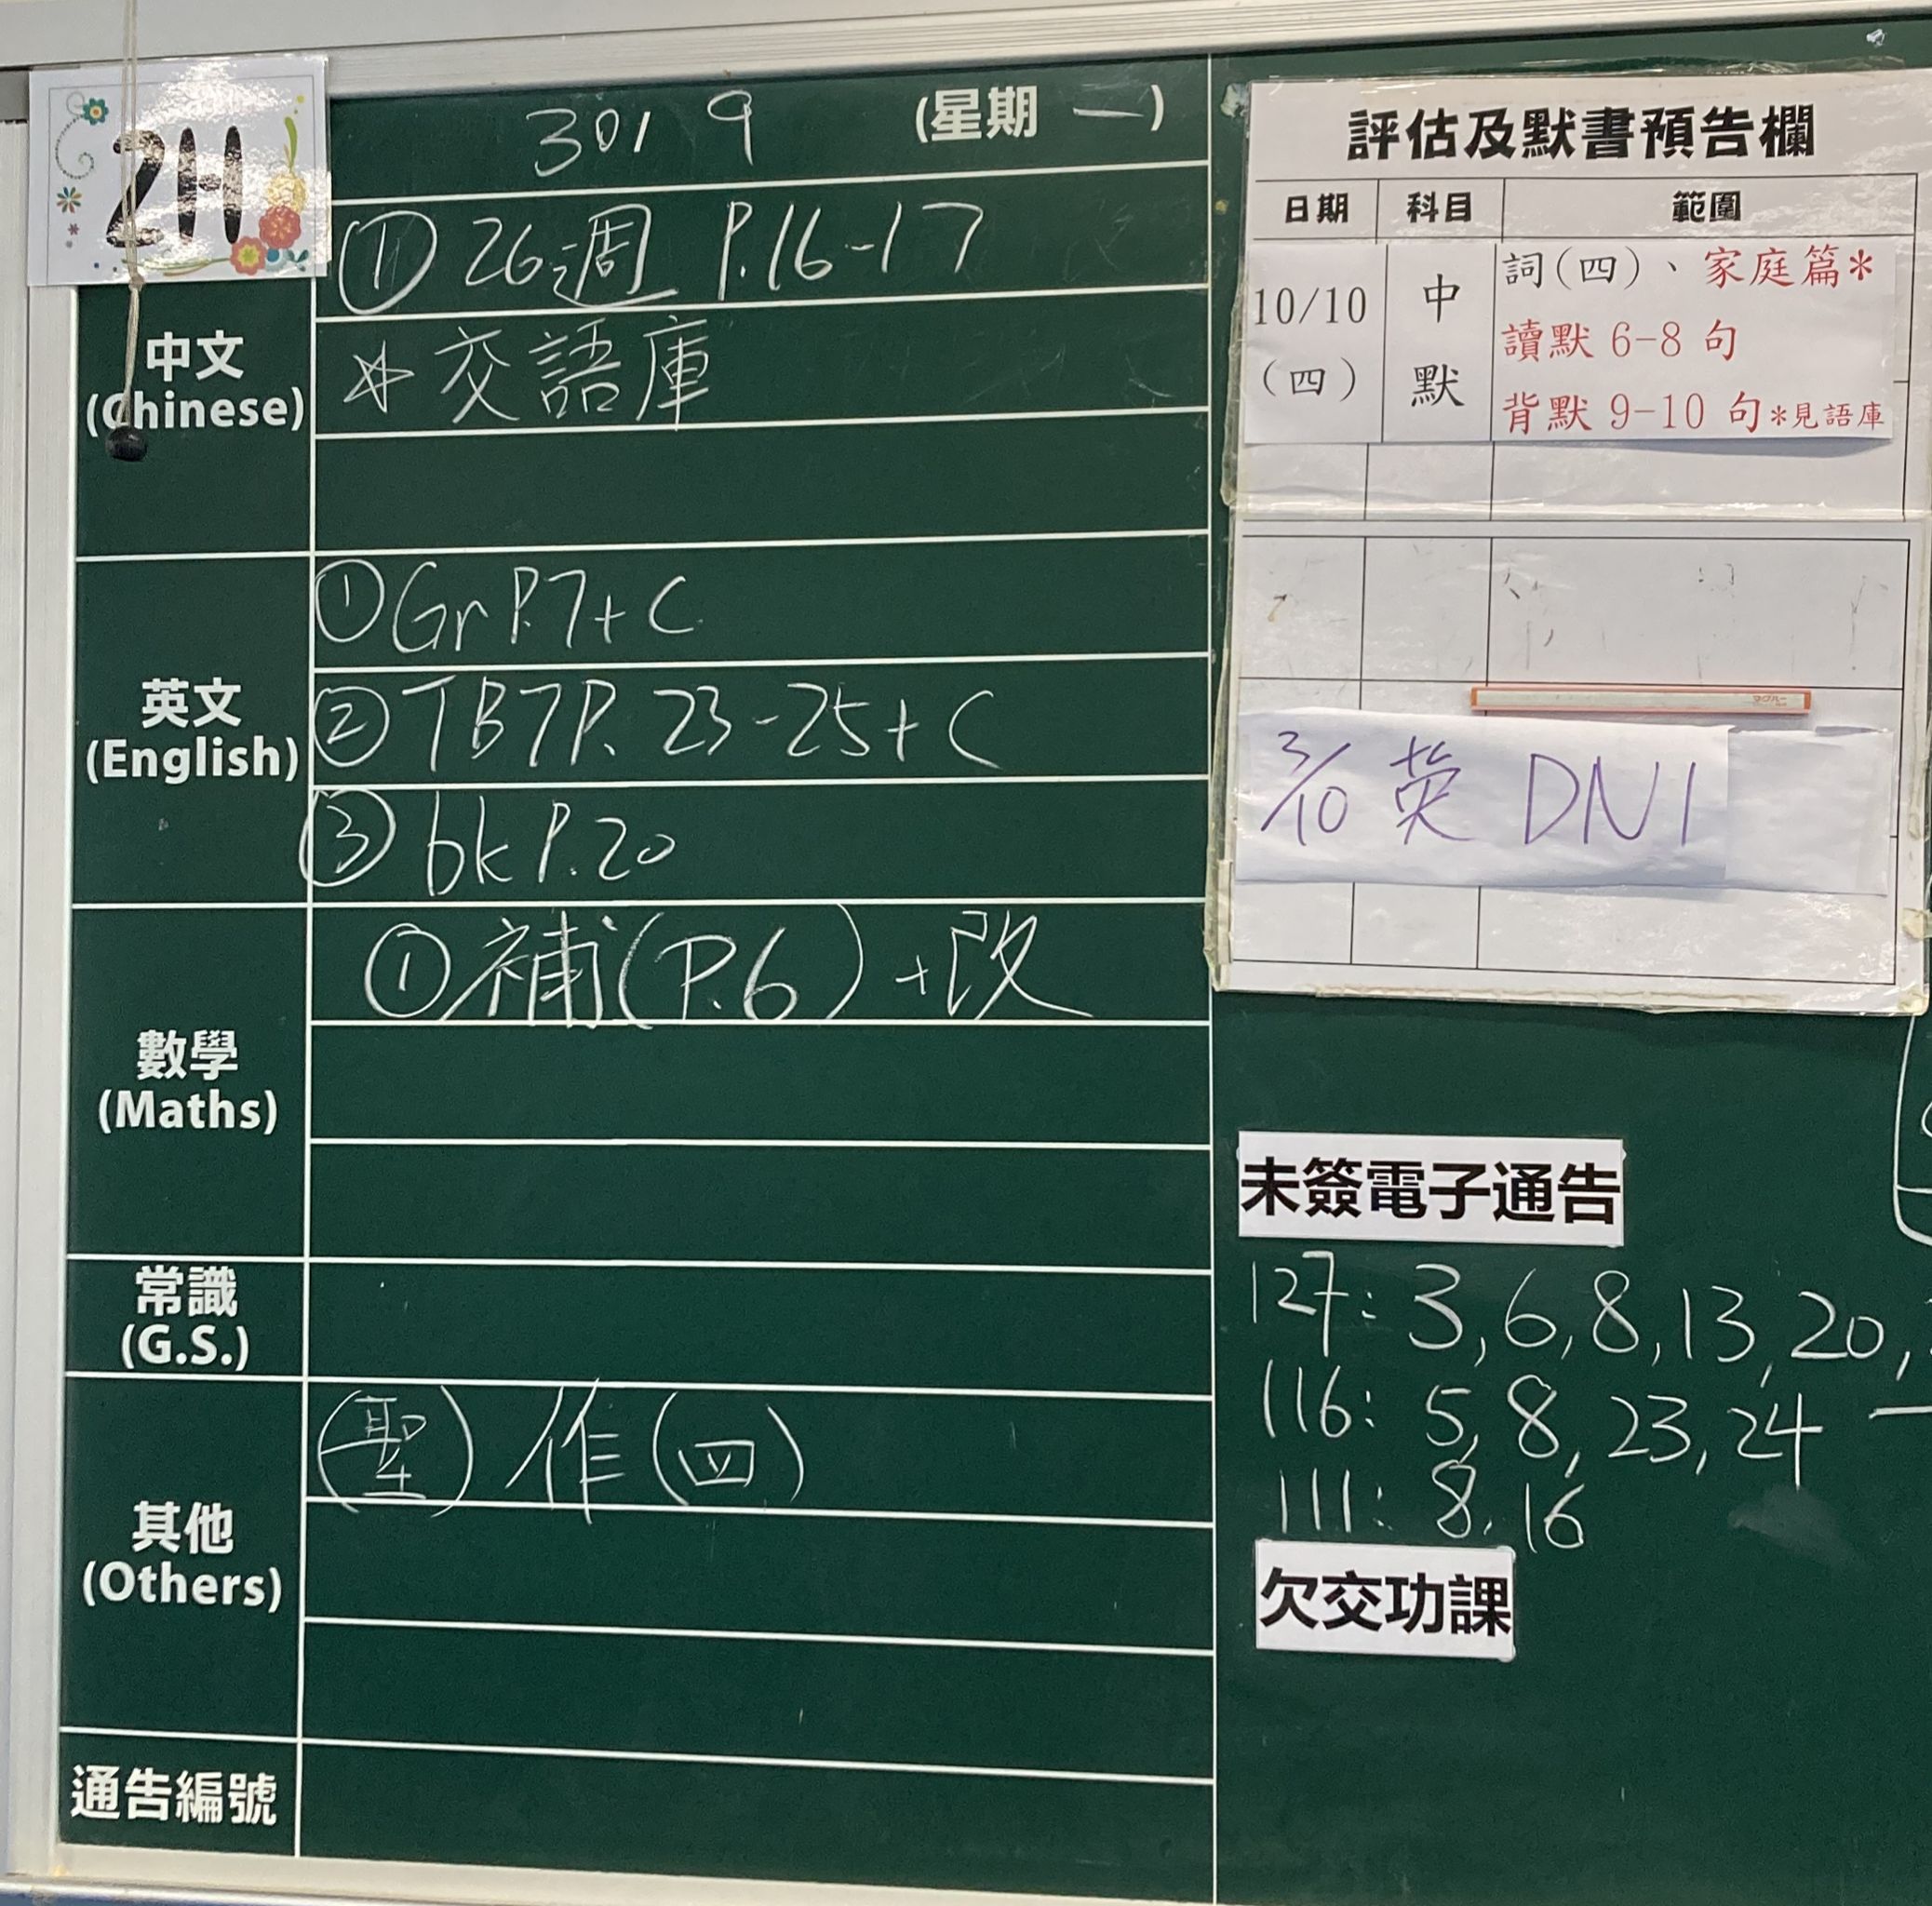 2H
30 / 9 (星期 一)
中文
(Chinese)
① 26週 P.16-17
☆ 交語庫
英文
(English)
① Gr P.7 + C
② TB7P. 23-25 + C
③ bk P.20
數學
(Maths)
① 補(P.6) + 改
常識
(G.S.)
其他
(Others)
(聖) 作(四)
通告編號
評估及默書預告欄
日期 科目 範圍
10/10
(四)
中
默
詞(四)、家庭篇*
讀默 6-8 句
背默 9-10 句*見語庫
3/10 英 DN1
未簽電子通告
127: 3, 6, 8, 13, 20,
116: 5, 8, 23, 24
111: 8, 16
欠交功課